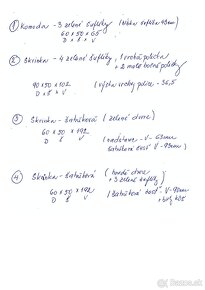 ① Komoda - 3 zelené šuflíky (výška šuflíka 18cm)
60 x 50 x 65
D x Š x V
② Skrinka - 4 zelené šuflíky, 1 vrchná polička
+ 2 malé bočné poličky
90 x 50 x 102
D Š V (výška vrchnej police - 36,5
③ Skrinka - šatníková (zelené dvere)
60 x 50 x 192
D Š V nadstavec - V - 63cm
šatníková časť V - 95cm
④ Skrinka - šatníková ( dvere
+ 3 zelené šuflíky)
60 x 50 x 192
D Š V šatníková časť V - 90cm